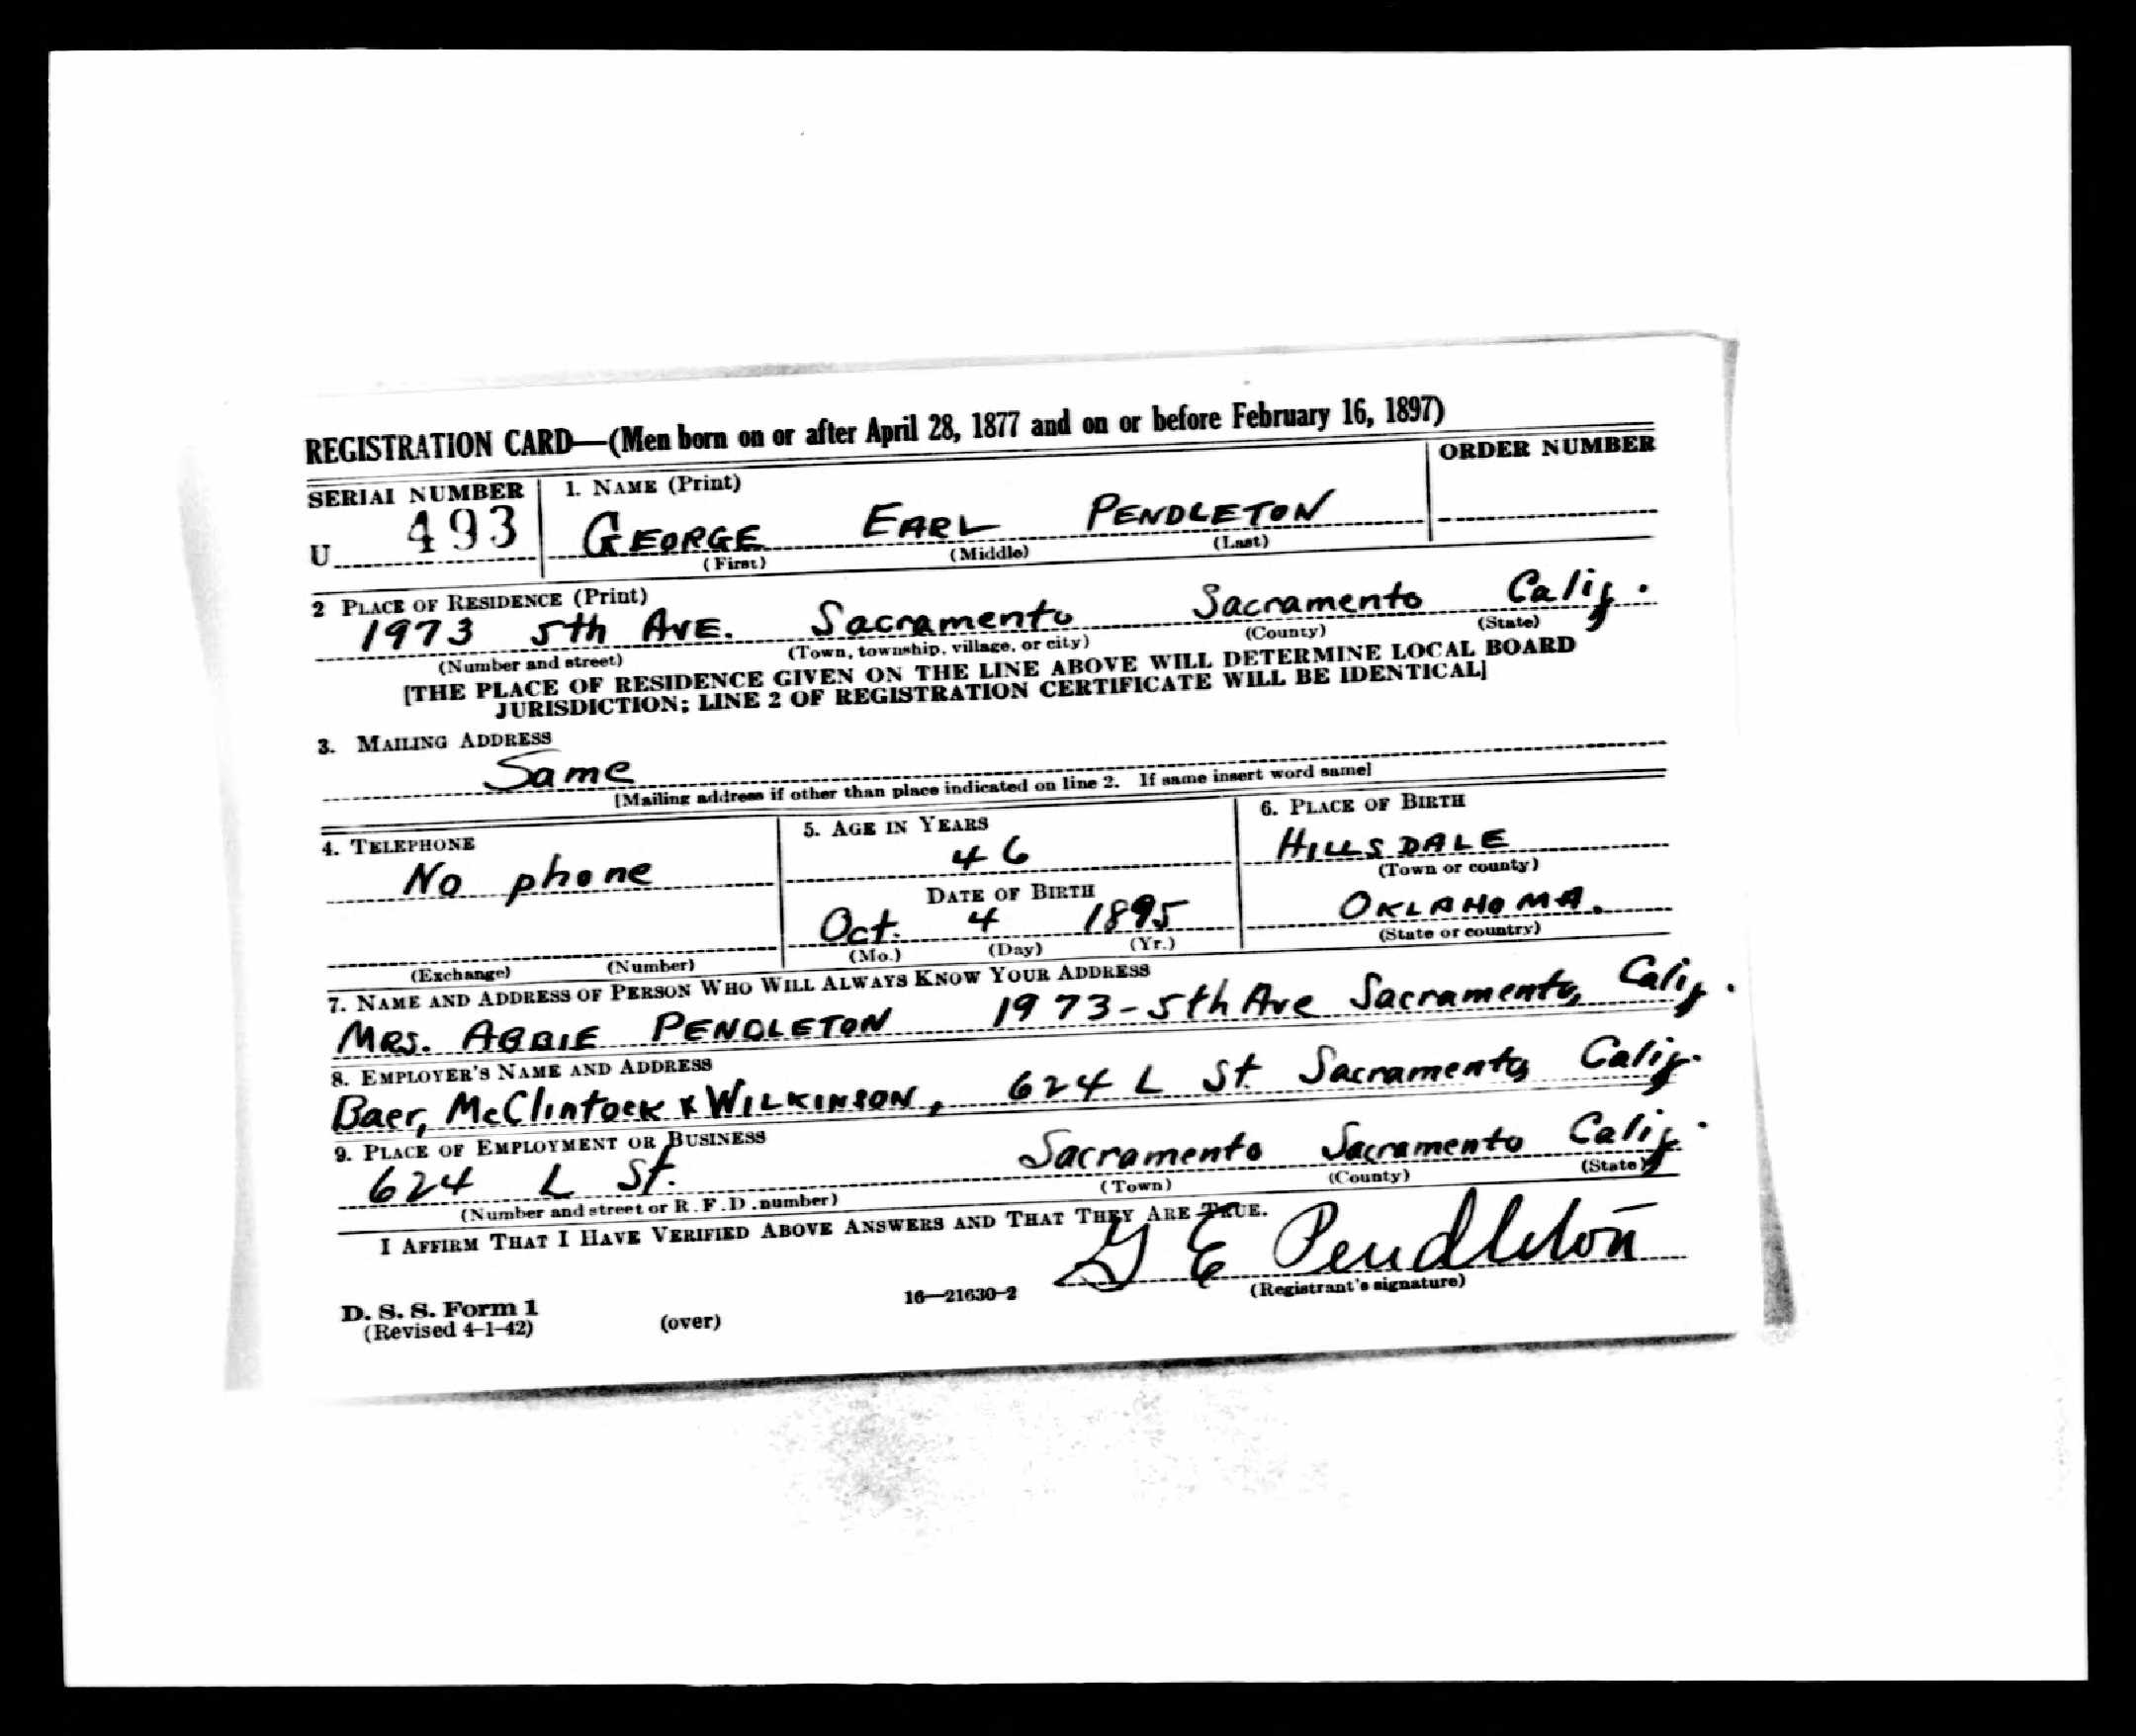 REGISTRATION CARD—(Men born on or after April 28, 1877 and on or before February 16, 1897)
SERIAL NUMBER 1. NAME (Print) ORDER NUMBER
U 493 GEORGE EARL PENDLETON
(First) (Middle) (Last)
2 PLACE OF RESIDENCE (Print)
1973 5th AVE. Sacramento Sacramento Calif.
(Number and street) (Town, township, village, or city) (County) (State)
[THE PLACE OF RESIDENCE GIVEN ON THE LINE ABOVE WILL DETERMINE LOCAL BOARD
JURISDICTION; LINE 2 OF REGISTRATION CERTIFICATE WILL BE IDENTICAL]
3. MAILING ADDRESS
Same
[Mailing address if other than place indicated on line 2. If same insert word same]
4. TELEPHONE 5. AGE IN YEARS 6. PLACE OF BIRTH
No phone 46 HILLSDALE
(Town or county)
DATE OF BIRTH
Oct. 4 1895 OKLAHOMA.
(Exchange) (Number) (Mo.) (Day) (Yr.) (State or country)
7. NAME AND ADDRESS OF PERSON WHO WILL ALWAYS KNOW YOUR ADDRESS
MRS. ABBIE PENDLETON 1973-5th Ave Sacramento, Calif.
8. EMPLOYER'S NAME AND ADDRESS
Baer, McClintock & WILKINSON, 624 L St Sacramento, Calif.
9. PLACE OF EMPLOYMENT OR BUSINESS
624 L St. Sacramento Sacramento Calif.
(Number and street or R.F.D. number) (Town) (County) (State)
I AFFIRM THAT I HAVE VERIFIED ABOVE ANSWERS AND THAT THEY ARE TRUE.
G E Pendleton
D. S. S. Form 1 16—21630-2 (Registrant's signature)
(Revised 4-1-42) (over)